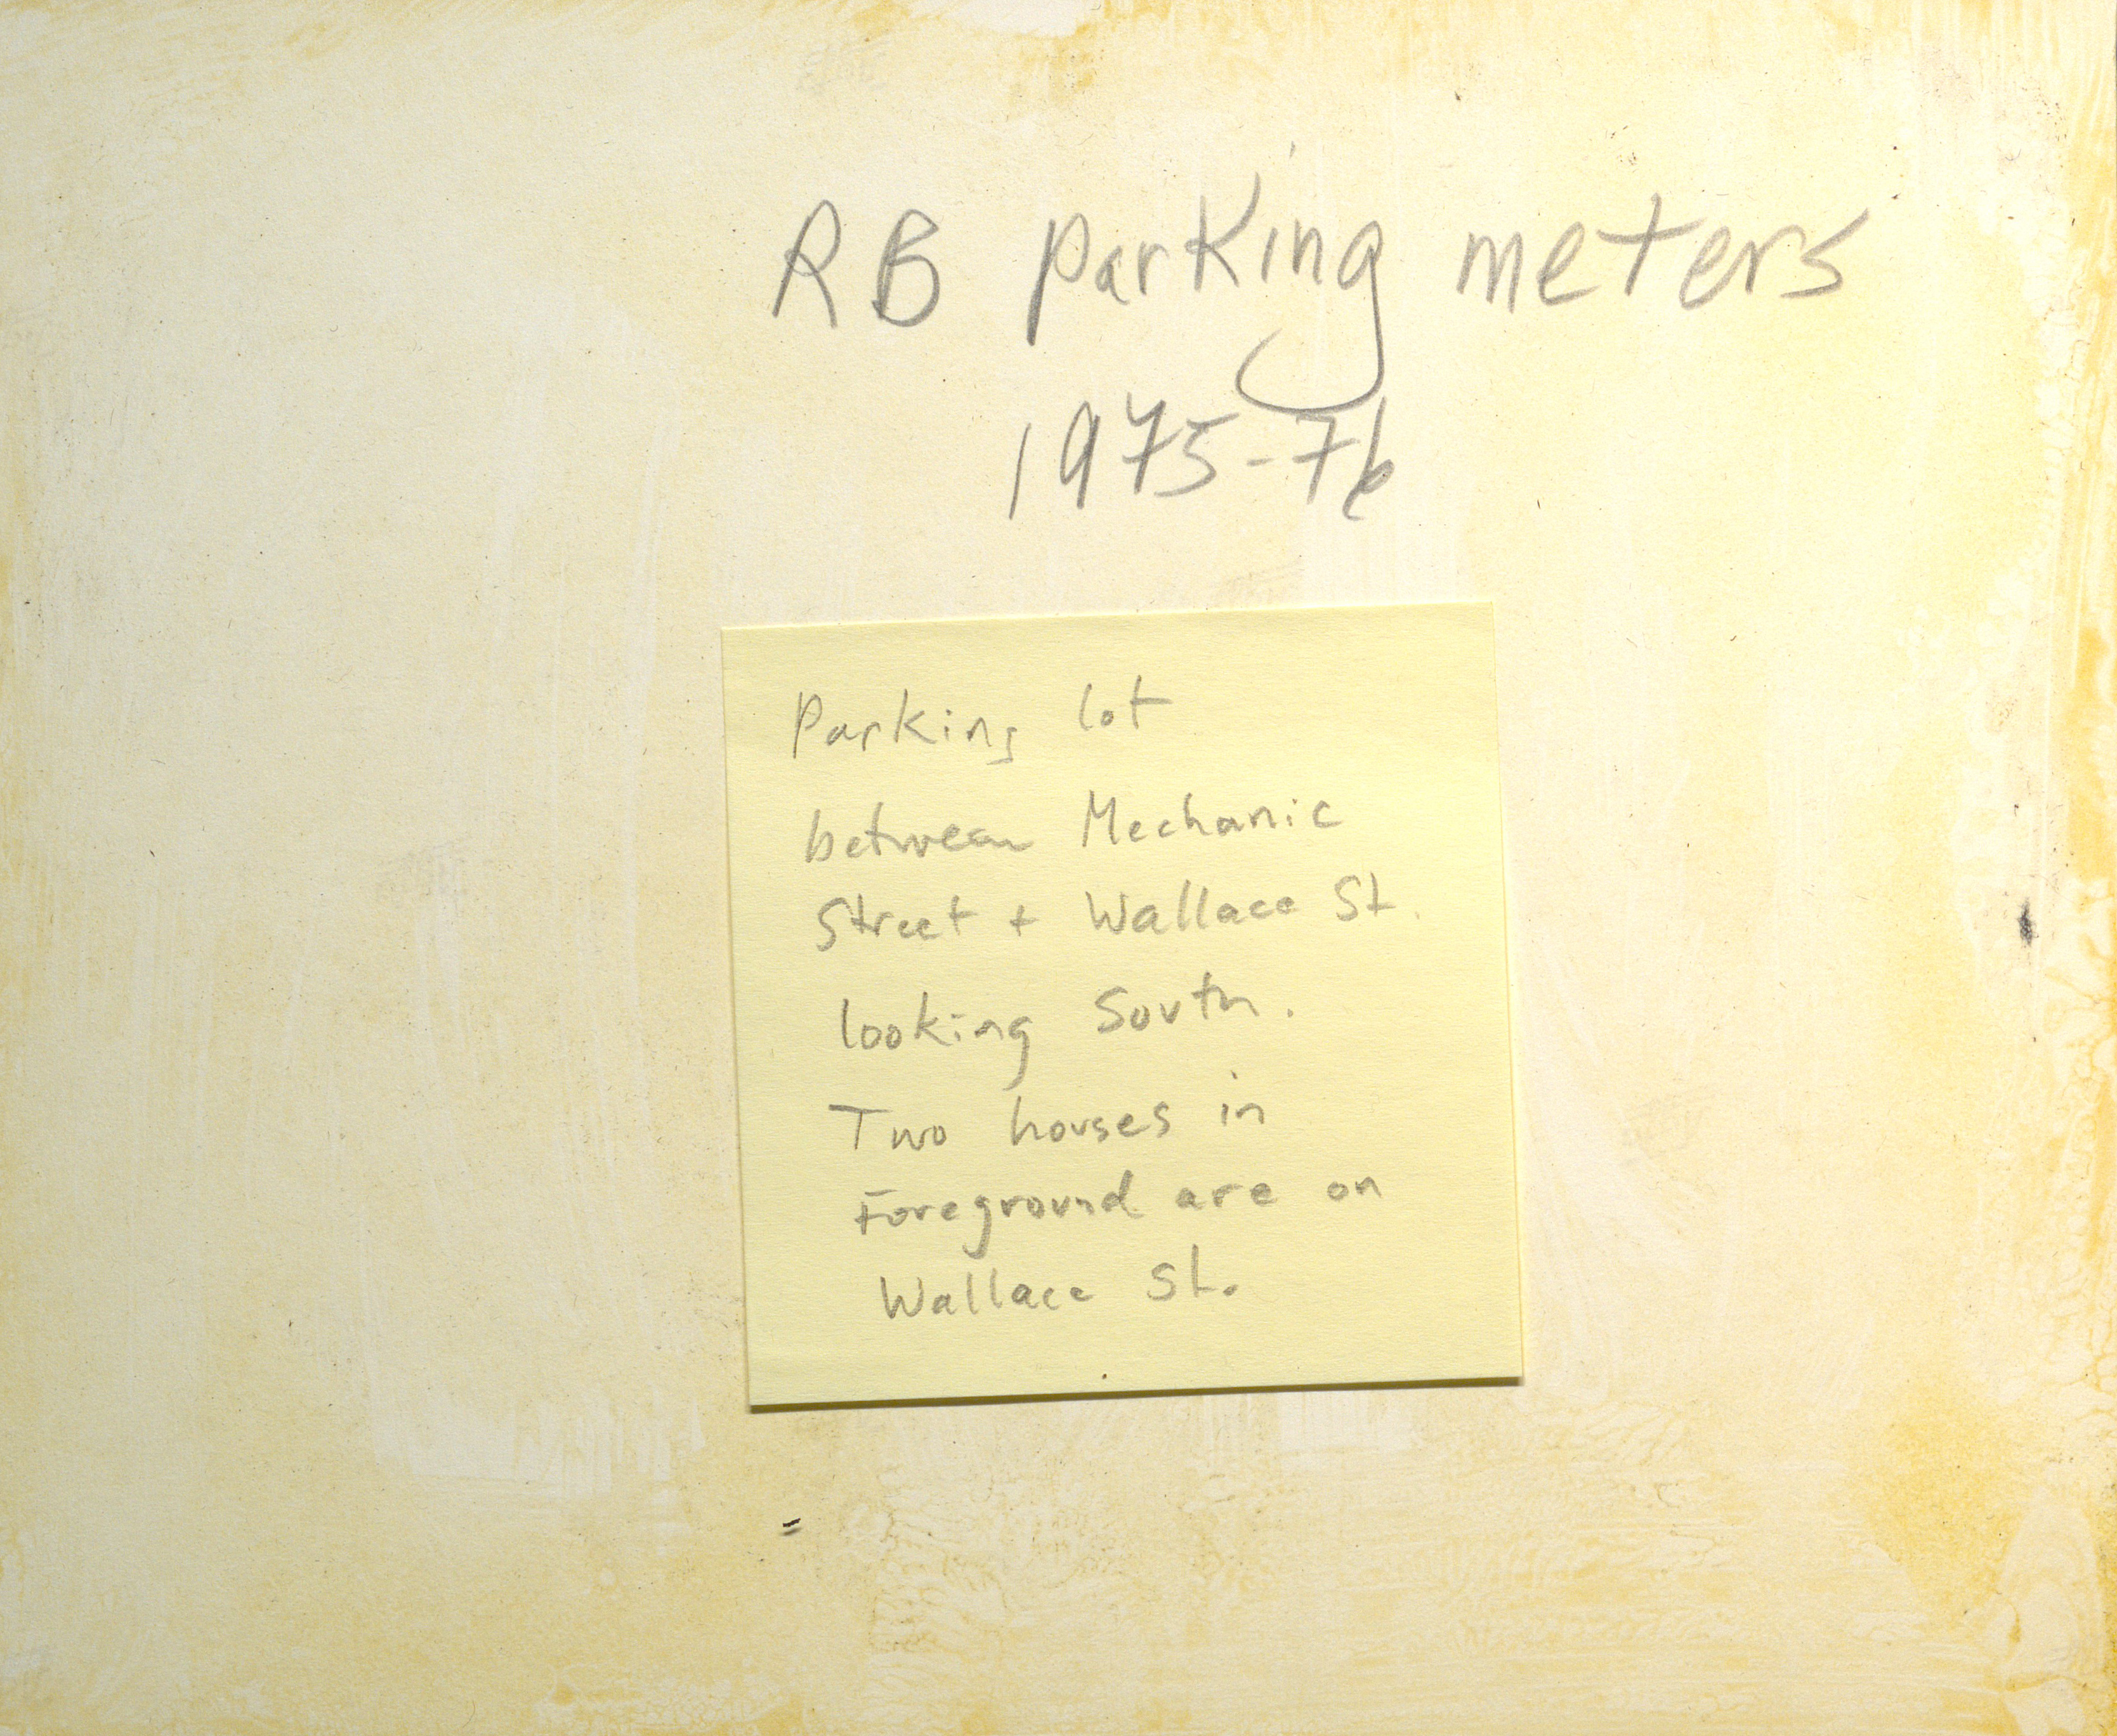 RB parking meters
1975-76
Parking lot
between Mechanic
Street + Wallace St.
looking South.
Two houses in
Foreground are on
Wallace St.